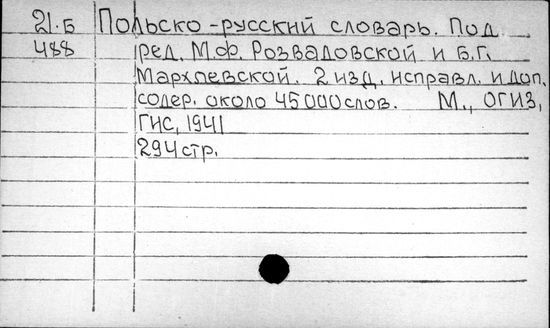 21.Б Польско-русский словарь. Под
488 ред. М.Ф. Розвадовской и Б.Г.
Мархлевской. 2 изд. исправл. и доп.
содер. около 45000 слов. М., ОГИЗ,
ГИС, 1941
294 стр.